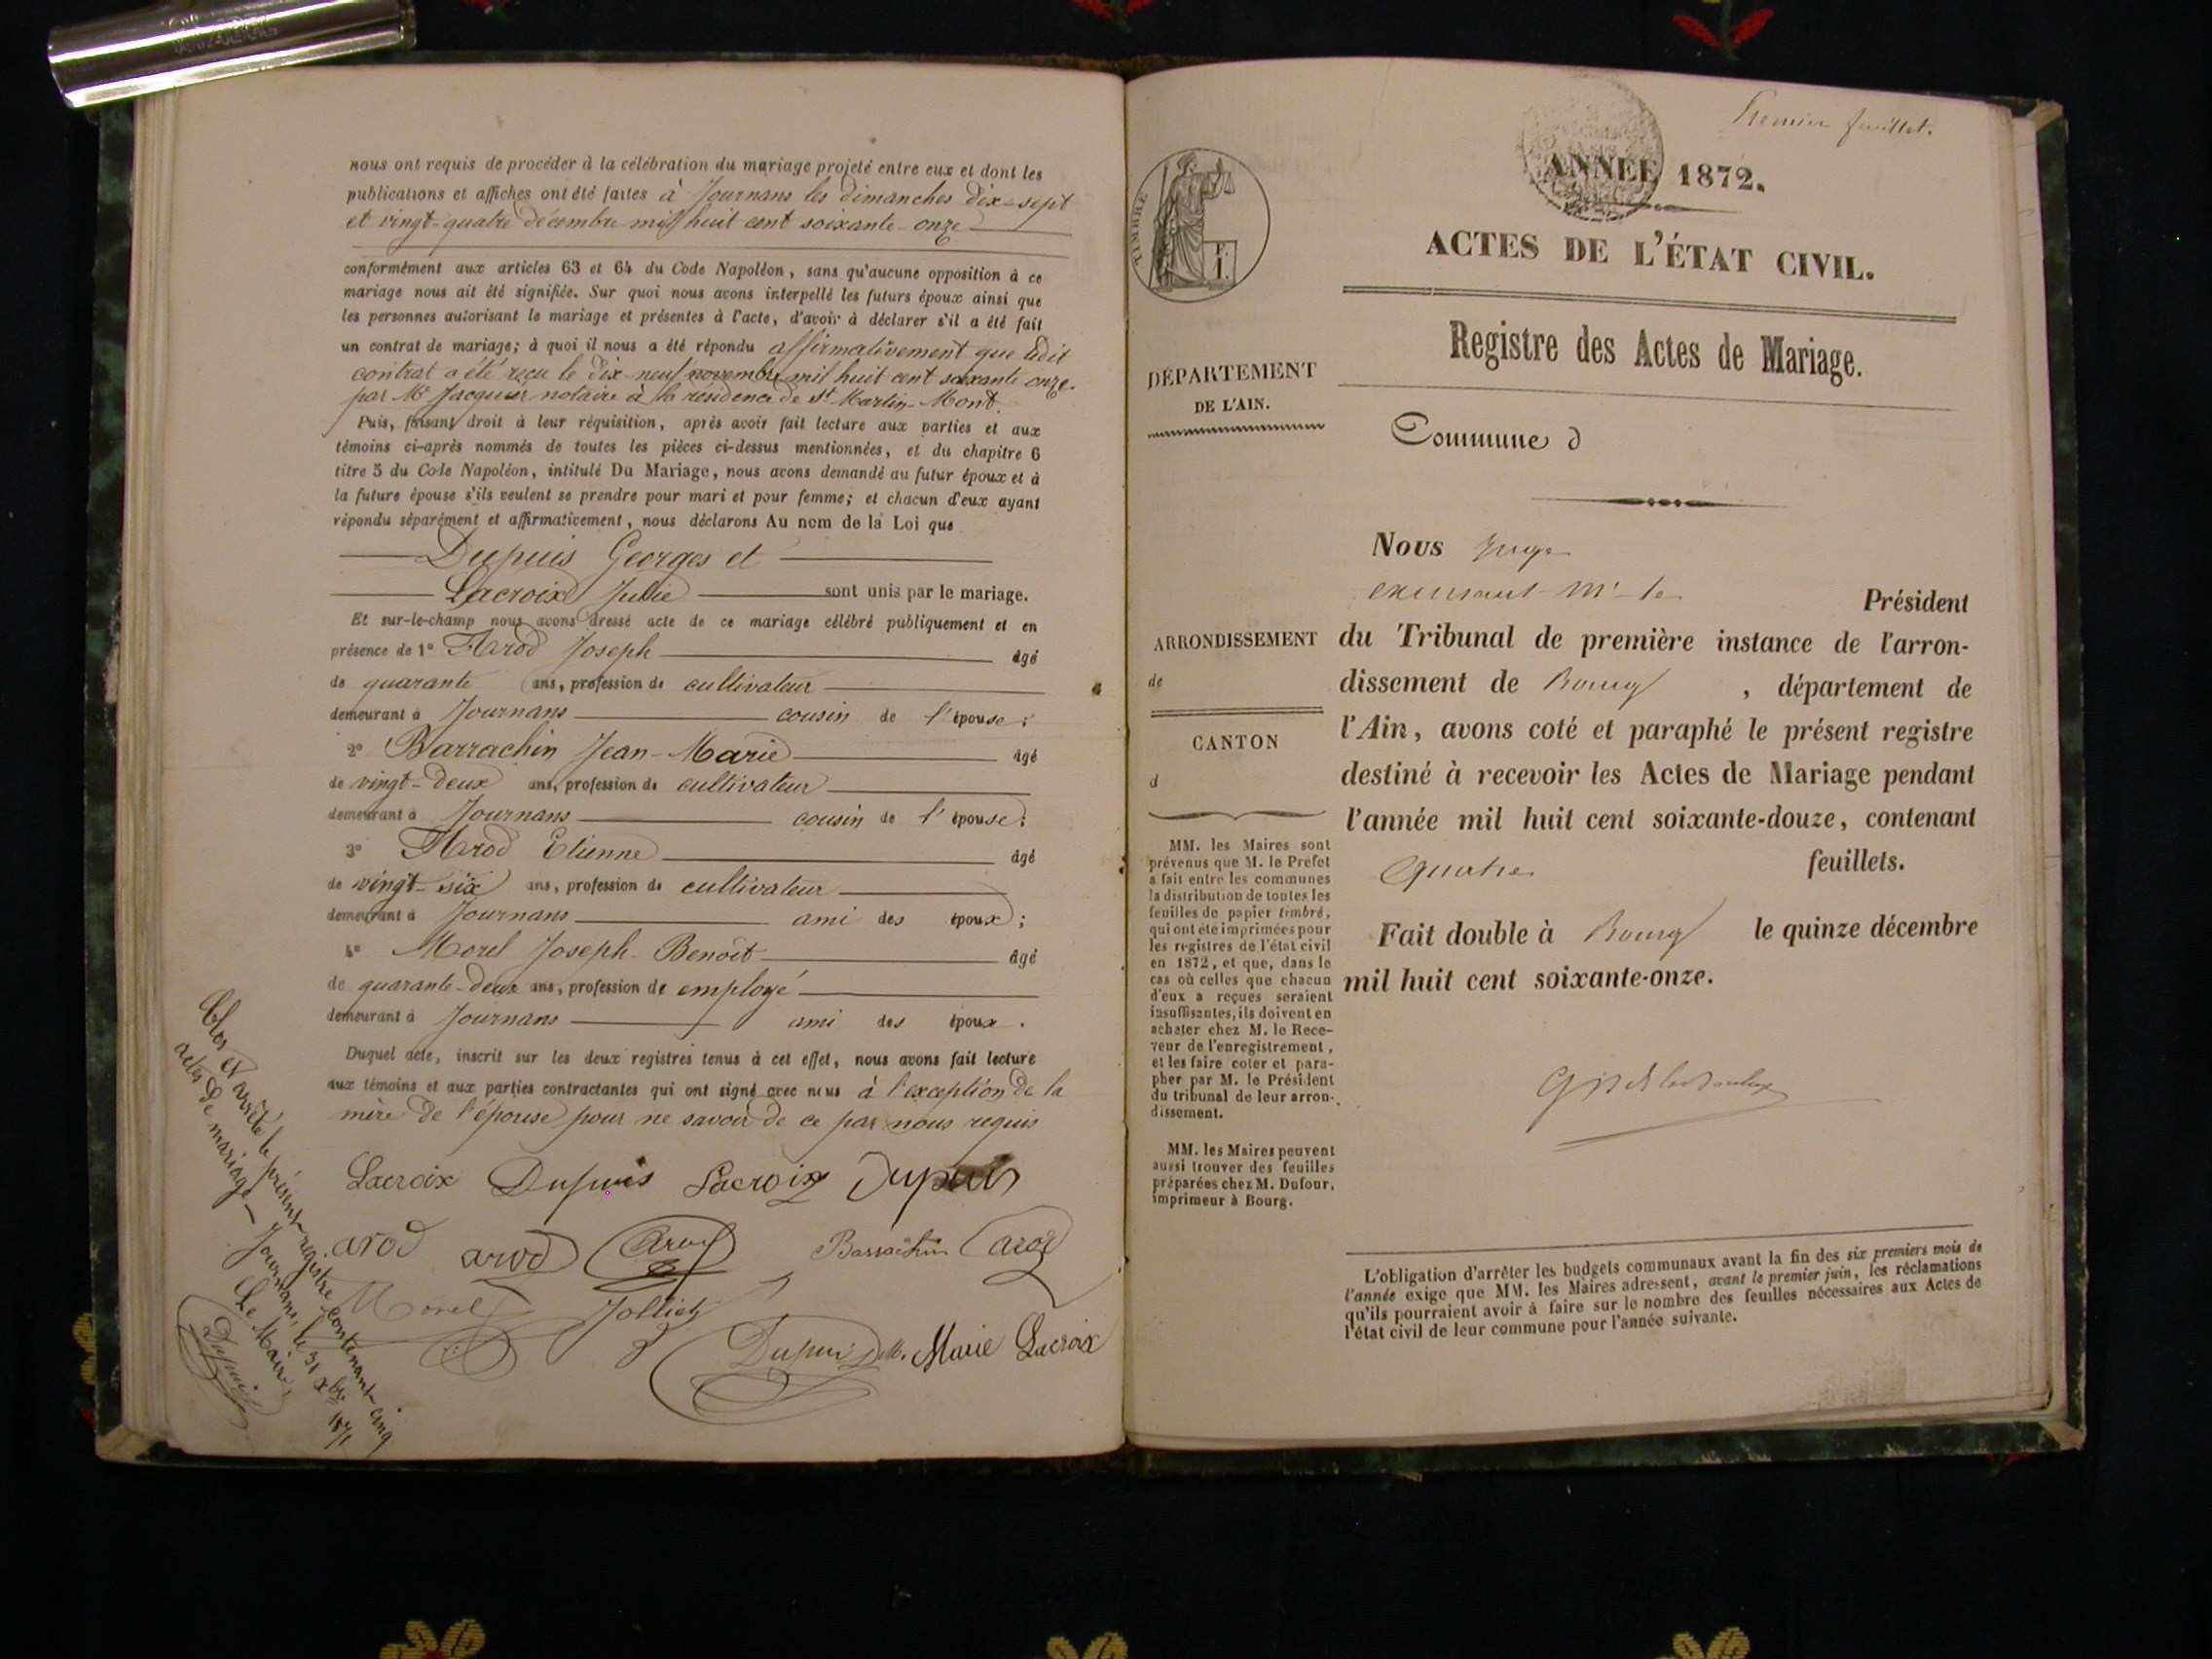 nous ont requis de procéder à la célébration du mariage projeté entre eux et dont les
publications et affiches ont été faites à Journans les dimanches dix-sept
et vingt-quatre décembre mil huit cent soixante-onze
conformément aux articles 63 et 64 du Code Napoléon, sans qu'aucune opposition à ce
mariage nous ait été signifiée. Sur quoi nous avons interpellé les futurs époux ainsi que
les personnes autorisant le mariage et présentes à l'acte, d'avoir à déclarer s'il a été fait
un contrat de mariage; à quoi il nous a été répondu affirmativement que ledit
contrat a été reçu le dix-neuf novembre mil huit cent soixante onze.
par Me Jacquier notaire à la résidence de St Martin-Mont.
Puis, faisant droit à leur réquisition, après avoir fait lecture aux parties et aux
témoins ci-après nommés de toutes les pièces ci-dessus mentionnées, et du chapitre 6
titre 5 du Code Napoléon, intitulé Du Mariage, nous avons demandé au futur époux et à
la future épouse s'ils veulent se prendre pour mari et pour femme; et chacun d'eux ayant
répondu séparément et affirmativement, nous déclarons Au nom de la Loi que
Dupuis Georges et
Lacroix Julie sont unis par le mariage.
Et sur-le-champ nous avons dressé acte de ce mariage célébré publiquement et en
présence de 1° Arod Joseph âgé
de quarante ans, profession de cultivateur
demeurant à Journans cousin de l'épouse;
2° Barrachin Jean-Marie âgé
de vingt-deux ans, profession de cultivateur
demeurant à Journans cousin de l'épouse;
3° Arod Etienne âgé
de vingt-six ans, profession de cultivateur
demeurant à Journans ami des époux;
4° Morel Joseph-Benoît âgé
de quarante-deux ans, profession de employé
demeurant à Journans ami des époux.
Duquel acte, inscrit sur les deux registres tenus à cet effet, nous avons fait lecture
aux témoins et aux parties contractantes qui ont signé avec nous à l'exception de la
mère de l'épouse pour ne savoir de ce par nous requis
Lacroix Dupuis Lacroix Dupuis
arod arod Arod Barrachin Arod
Morel Jolliet
Dupuis Marie Lacroix
Clos et arrêté le présent registre contenant cinq
actes de mariage – Journans, le 31 Xbre 1871
Le Maire,
Dupuis
Premier feuillet.
ANNÉE 1872.
ACTES DE L'ÉTAT CIVIL.
Registre des Actes de Mariage.
TIMBRE
DÉPARTEMENT
DE L'AIN.
ARRONDISSEMENT
de
CANTON
d
MM. les Maires sont
prévenus que M. le Préfet
a fait entre les communes
la distribution de toutes les
feuilles de papier timbré,
qui ont été imprimées pour
les registres de l'état civil
en 1872, et que, dans le
cas où celles que chacun
d'eux a reçues seraient
insuffisantes, ils doivent en
acheter chez M. le Rece-
veur de l'enregistrement,
et les faire coter et para-
pher par M. le Président
du tribunal de leur arron-
dissement.
MM. les Maires peuvent
aussi trouver des feuilles
préparées chez M. Dufour,
imprimeur à Bourg.
Commune d
Nous Juge
Mr le Président
du Tribunal de première instance de l'arron-
dissement de Bourg, département de
l'Ain, avons coté et paraphé le présent registre
destiné à recevoir les Actes de Mariage pendant
l'année mil huit cent soixante-douze, contenant
quatre feuillets.
Fait double à Bourg le quinze décembre
mil huit cent soixante-onze.
L'obligation d'arrêter les budgets communaux avant la fin des six premiers mois de
l'année exige que MM. les Maires adressent, avant le premier juin, les réclamations
qu'ils pourraient avoir à faire sur le nombre des feuilles nécessaires aux Actes de
l'état civil de leur commune pour l'année suivante.